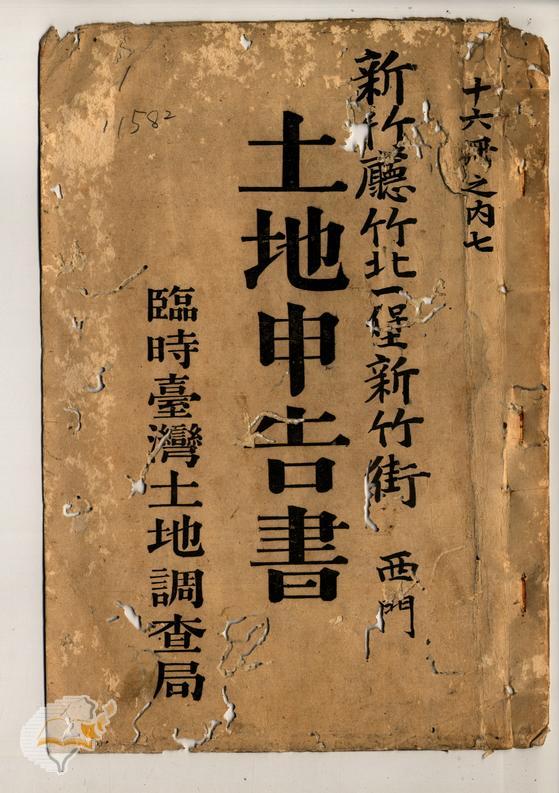 十六冊之內七
新竹廳竹北一堡新竹街 西門
土地申告書
臨時臺灣土地調查局
11582